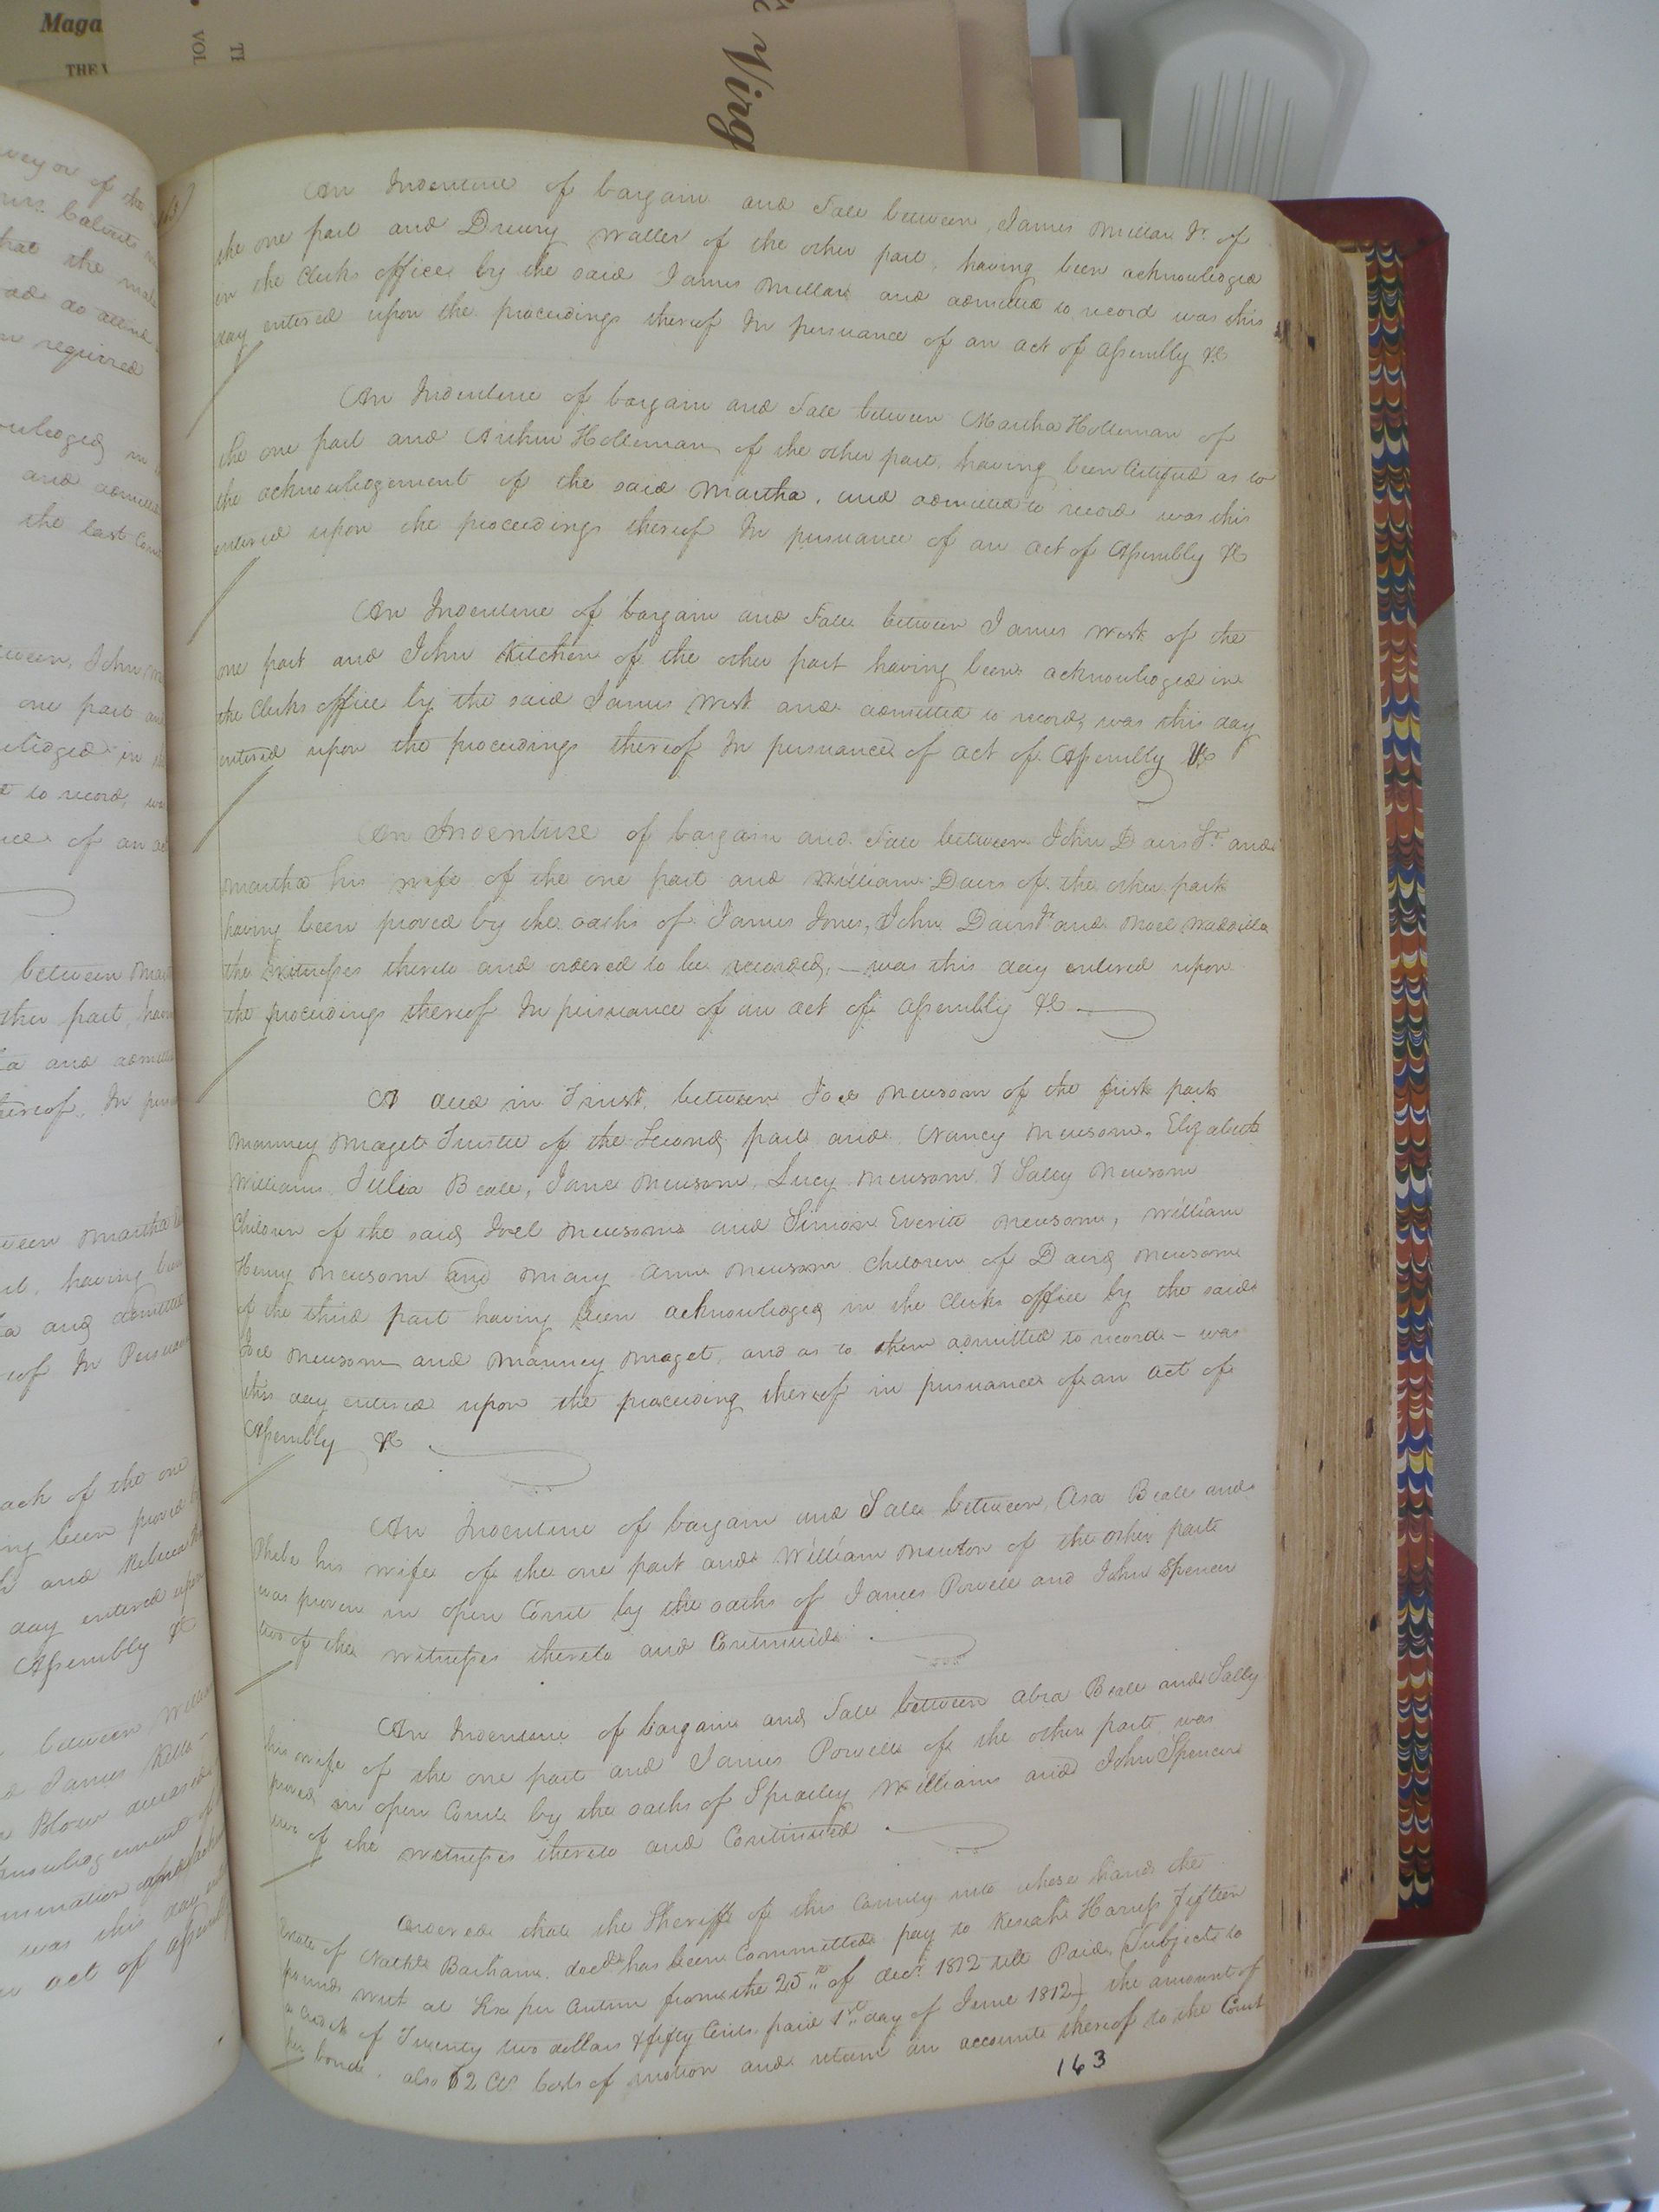 Maga
THE V
VOL
TI
Virg
163
An Indenture of bargain and Sale between James Millar Jr. of
the one part and Drewry Waller of the other part, having been acknowledged
in the Clerks office by the said James Millar and admitted to record was this
day entered upon the proceedings thereof In pursuance of an act of Assembly &c
An Indenture of bargain and Sale between Martha Holleman of
the one part and Arthur Holleman of the other part, having been Certified as to
the acknowledgement of the said Martha, and admitted to record was this
entered upon the proceedings thereof In pursuance of an act of Assembly &c
An Indenture of bargain and Sale between James West of the
one part and John Kitchen of the other part having been acknowledged in
the Clerks office by the said James West and admitted to record, was this day
entered upon the proceedings thereof In pursuance of act of Assembly &c
An Indenture of bargain and Sale between John Davis Sr. and
Martha his wife of the one part and William Davis of the other part
having been proved by the oaths of James Jones, John Davis Jr and Noel Waddill
the witnesses thereto and ordered to be recorded, — was this day entered upon
the proceedings thereof In pursuance of an act of Assembly &c
A deed in Trust, between Joel Newsom of the first part
Manney Maget Trustee of the Second part and Nancy Newsom, Elizabeth
Williams, Julia Beale, Jane Newsom, Lucy Newsom & Sally Newsom
Children of the said Joel Newsom and Simon Everitt Newsom, William
Henry Newsom and Mary Ann Newsom Children of David Newsom
of the third part having been acknowledged in the Clerks office by the said
Joel Newsom and Manney Maget, and as to them admitted to record — was
this day entered upon the proceeding thereof in pursuance of an act of
Assembly &c
An Indenture of bargain and Sale between, Asa Beale and
Phebe his wife of the one part and William Newton of the other part
was proven in open Court by the oaths of James Powell and John Spencer
two of the witnesses thereto and Continued
An Indenture of bargain and Sale between Abra Beale and Sally
his wife of the one part and James Powell of the other part was
proved in open Court by the oaths of Spratley Williams and John Spencer
two of the witnesses thereto and Continued
Ordered that the Sheriff of this County into whose hands the
Estate of Barham, decd has been Committed pay to Keziah Harriss fifteen
pounds with at per Centum from the 25th of decr. 1812 till Paid (Subject to
a credit of Twenty two dollars & fifty Cents paid 1st day of June 1812) the amount of
her bond, also 62 Cts Costs of motion and return an account thereof to the Court
163